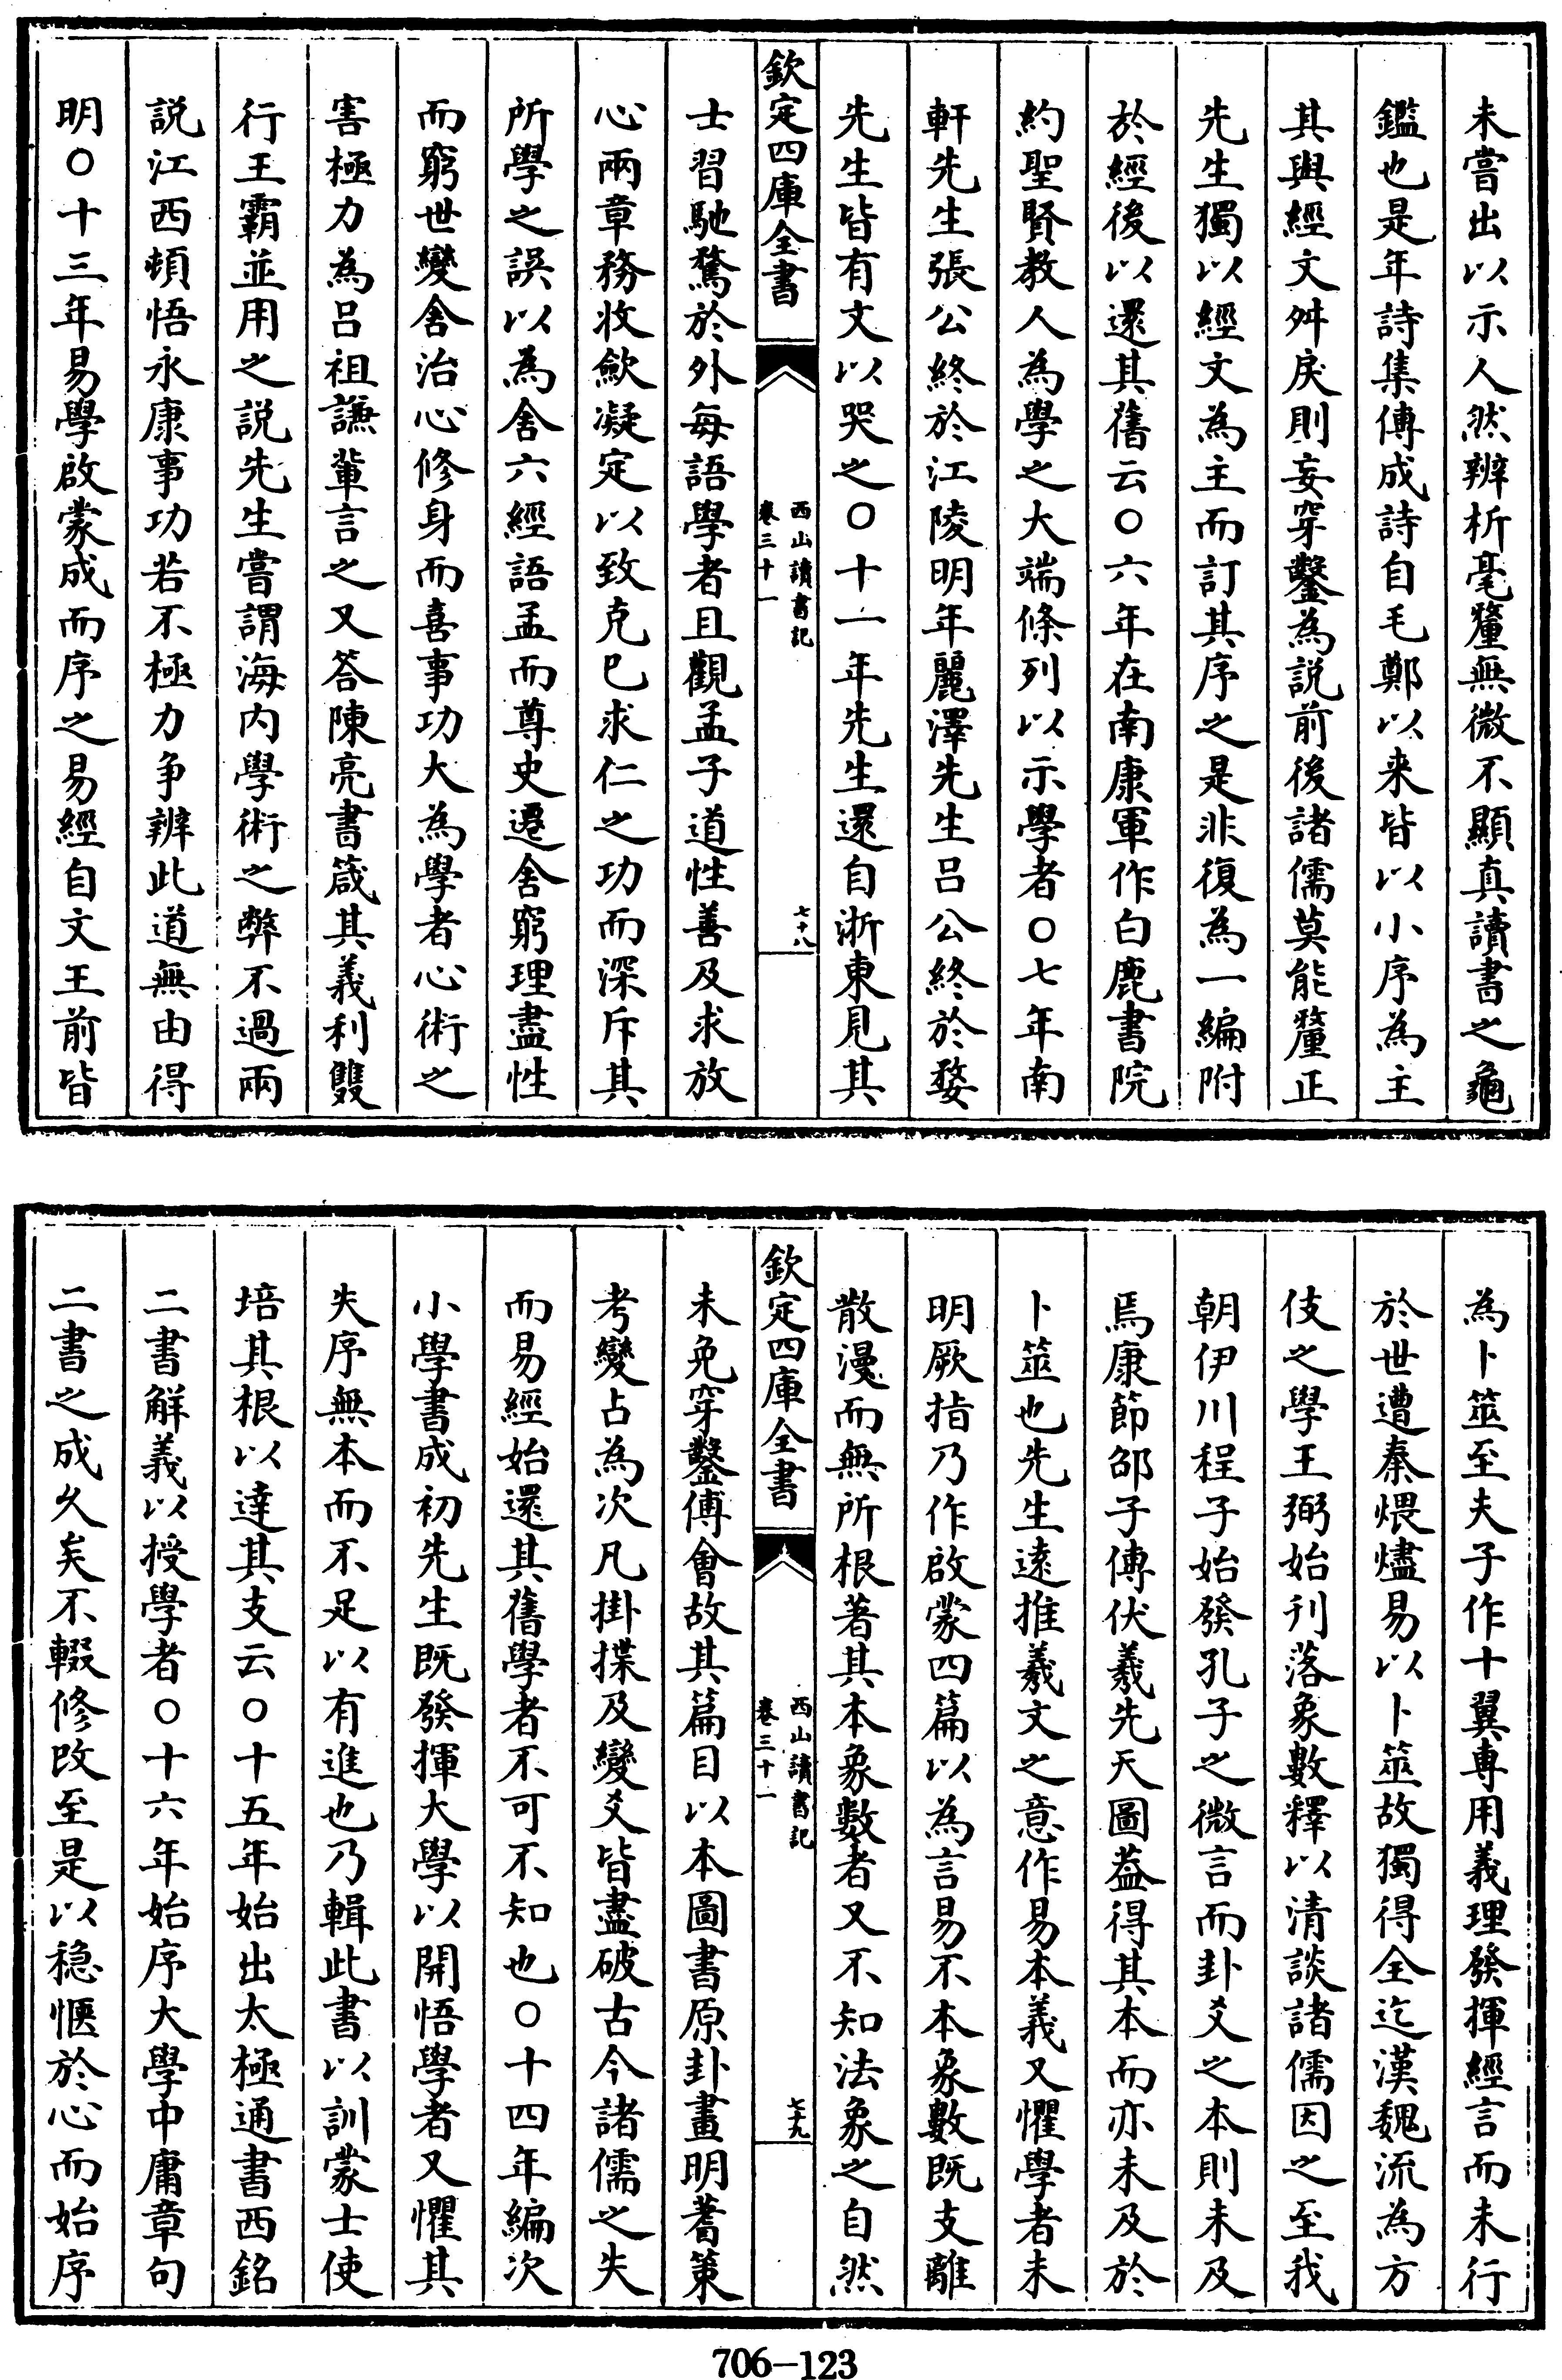 未嘗出以示人然辨析毫釐無微不顯真讀書之龜
鑑也是年詩集傳成詩自毛鄭以来皆以小序為主
其與經文舛戾則妄穿鑿為説前後諸儒莫能釐正
先生獨以經文為主而訂其序之是非復為一編附
於經後以還其舊云○六年在南康軍作白鹿書院
約聖賢教人為學之大端條列以示學者○七年南
軒先生張公終於江陵明年麗澤先生吕公終於婺
先生皆有文以哭之○十一年先生還自浙東見其
欽定四庫全書
西山讀書記
卷三十一
七十八
士習馳騖於外每語學者且觀孟子道性善及求放
心兩章務收歛凝定以致克己求仁之功而深斥其
所學之誤以為舍六經語孟而尊史遷舍窮理盡性
而窮世變舍治心修身而喜事功大為學者心術之
害極力為吕祖謙輩言之又答陳亮書箴其義利雙
行王霸並用之説先生嘗謂海内學術之弊不過兩
説江西頓悟永康事功若不極力争辨此道無由得
明○十三年易學啟蒙成而序之易經自文王前皆
為卜筮至夫子作十翼專用義理發揮經言而未行
於世遭秦煨燼易以卜筮故獨得全迄漢魏流為方
伎之學王弼始刋落象數釋以清談諸儒因之至我
朝伊川程子始發孔子之微言而卦爻之本則未及
焉康節邵子傳伏羲先天圖葢得其本而亦未及於
卜筮也先生逺推羲文之意作易本義又懼學者未
明厥指乃作啟蒙四篇以為言易不本象數既支離
散漫而無所根著其本象數者又不知法象之自然
欽定四庫全書
西山讀書記
卷三十一
七十九
未免穿鑿傅會故其篇目以本圖書原卦畫明蓍策
考變占為次凡掛揲及變爻皆盡破古今諸儒之失
而易經始還其舊學者不可不知也○十四年編次
小學書成初先生既發揮大學以開悟學者又懼其
失序無本而不足以有進也乃輯此書以訓蒙士使
培其根以達其支云○十五年始出太極通書西銘
二書解義以授學者○十六年始序大學中庸章句
二書之成久矣不輟修改至是以穏愜於心而始序
706-123